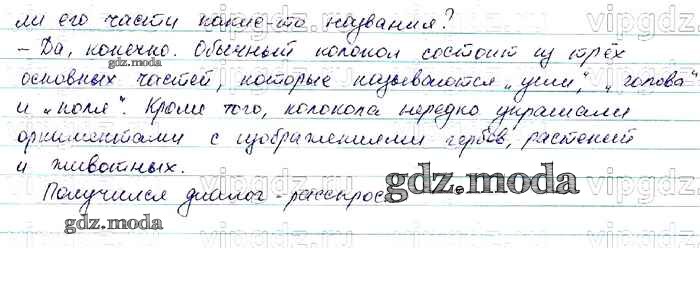 ли его части какие-то названия?
– Да, конечно. Обычный колокол состоит из трёх
основных частей, которые называются „уши“, „голова“
и „поля“. Кроме того, колокола нередко украшали
орнаментами с изображениями гербов, растений
и животных.
Получился диалог-расспрос
gdz.moda
gdz.moda
gdz.moda
gdz.moda
vipgdz.ru